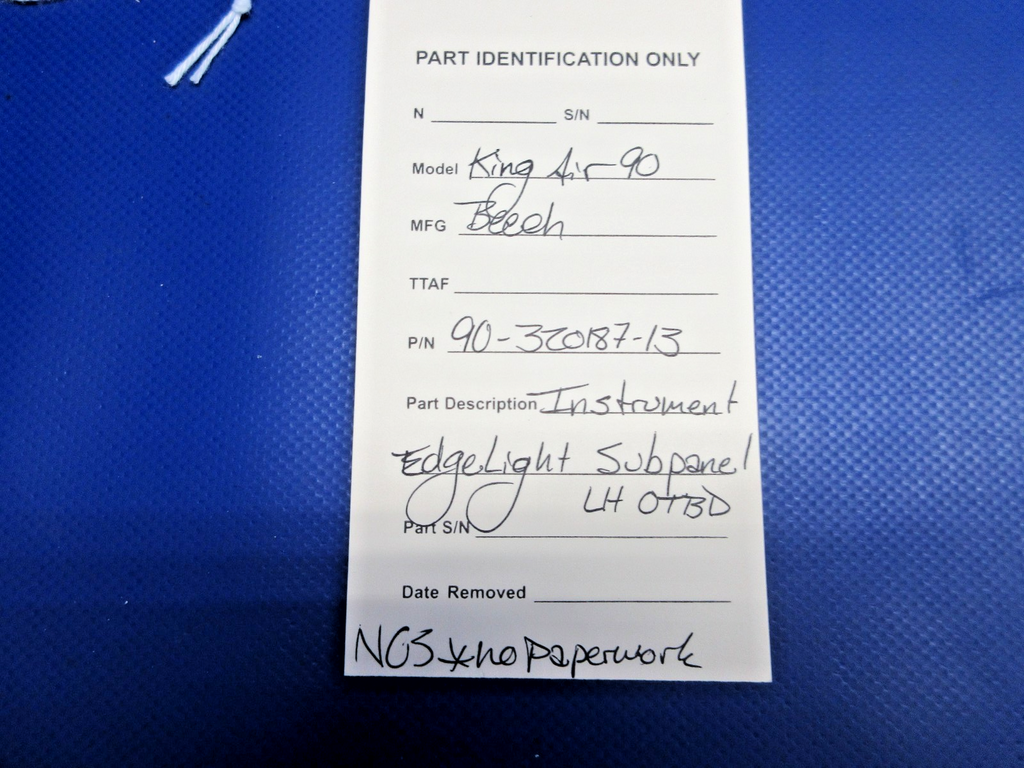 PART IDENTIFICATION ONLY
N S/N
Model King Air-90
MFG Beech
TTAF
P/N 90-320187-13
Part Description Instrument
EdgeLight Subpanel
LH OTBD
Part S/N
Date Removed
NC3 *no paperwork